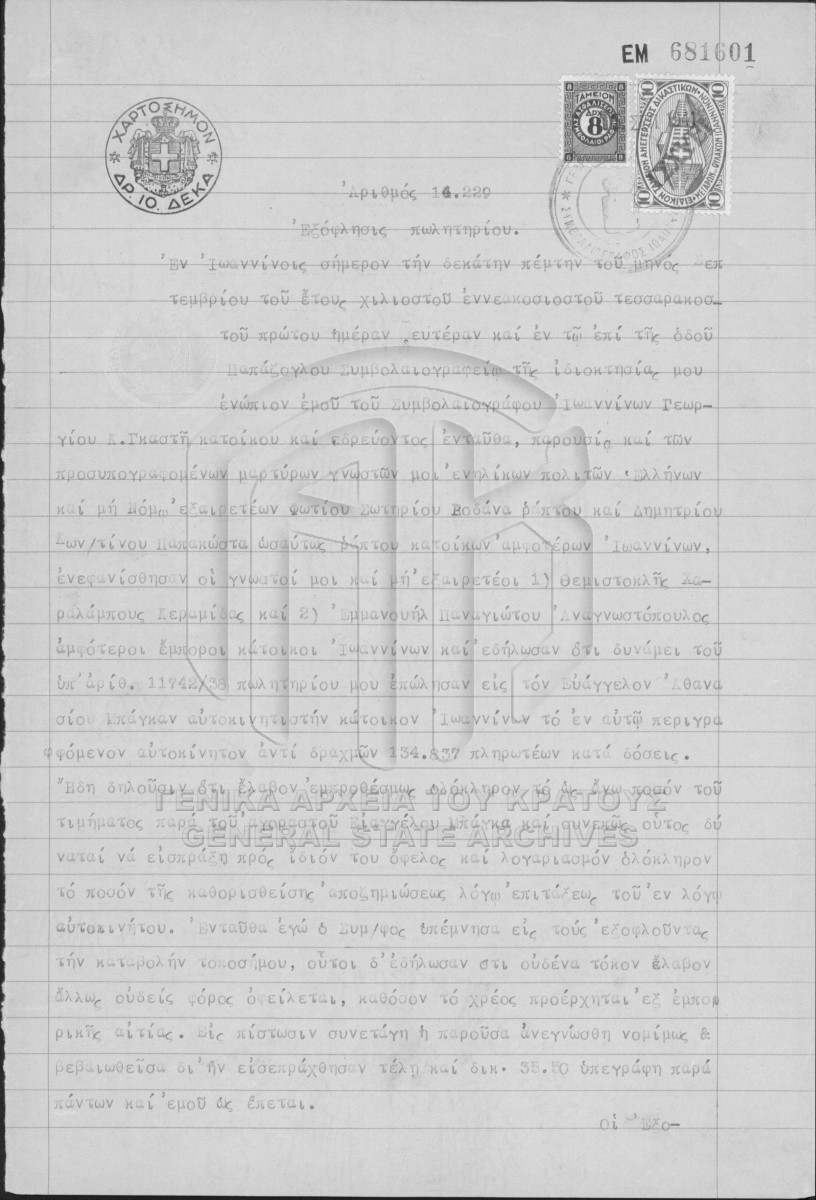 ΕΜ 681601
ΧΑΡΤΟΣΗΜΟΝ
ΔΡ. 10. ΔΕΚΑ
ΤΑΜΕΙΟΝ
ΔΡΧ 8
10 10
Ἀριθμός 14.229
Ἐξόφλησις πωλητηρίου.
Ἐν Ἰωαννίνοις σήμερον τήν δεκάτην πέμπτην τοῦ μηνός Σεπ
τεμβρίου τοῦ ἔτους χιλιοστοῦ ἐννεακοσιοστοῦ τεσσαρακοσ-
τοῦ πρώτου ἡμέραν Δευτέραν καί ἐν τῷ ἐπί τῆς ὁδοῦ
Παπάζογλου Συμβολαιογραφείῳ τῆς ἰδιοκτησίας μου
ἐνώπιον ἐμοῦ τοῦ Συμβολαιογράφου Ἰωαννίνων Γεωρ-
γίου Κ.Γκαστῆ κατοίκου καί εδρεύοντος ἐνταῦθα, παρουσίᾳ καί τῶν
προσυπογραφομένων μαρτύρων γνωστῶν μοι ἐνηλίκων πολιτῶν Ἑλλήνων
καί μή Νόμῳ ἐξαιρετέων Φωτίου Σωτηρίου Βοδάνα ῥάπτου καί Δημητρίου
Κων/τίνου Παπακώστα ὡσαύτως ῥάπτου κατοίκων ἀμφοτέρων Ἰωαννίνων,
ἐνεφανίσθησαν οἱ γνωστοί μοι καί μή ἐξαιρετέοι 1) Θεμιστοκλῆς Χα-
ραλάμπους Κεραμίδας καί 2) Ἐμμανουήλ Παναγιώτου Ἀναγνωστόπουλος
ἀμφότεροι ἔμποροι κάτοικοι Ἰωαννίνων καί ἐδήλωσαν ὅτι δυνάμει τοῦ
ὑπ' ἀρίθ. 11742/38 πωλητηρίου μου ἐπώλησαν εἰς τόν Εὐάγγελον Ἀθανα
σίου Μπάγκαν αὐτοκινητιστήν κάτοικον Ἰωαννίνων τό ἐν αὐτῷ περιγρα
φφόμενον αὐτοκίνητον ἀντί δραχμῶν 134.837 πληρωτέων κατά δόσεις.
Ἤδη δηλοῦσιν ὅτι ἔλαβον ἐμπροθέσμως ὁλόκληρον τό ὡς ἄνω ποσόν τοῦ
τιμήματος παρά τοῦ ἀγοραστοῦ Εὐαγγέλου Μπάγκα καί συνεπῶς οὗτος δύ
ναταί νά εἰσπράξῃ πρός ἴδιόν του ὄφελος καί λογαριασμόν ὁλόκληρον
τό ποσόν τῆς καθορισθείσης ἀποζημιώσεως λόγῳ ἐπιτάξεως τοῦ ἐν λόγῳ
αὐτοκινήτου. Ἐνταῦθα ἐγώ ὁ Συμ/φος ὑπέμνησα εἰς τούς ἐξοφλοῦντας
τήν καταβολήν τοκοσήμου, οὗτοι δ' ἐδήλωσαν ὅτι οὐδένα τόκον ἔλαβον
ἄλλως οὐδείς φόρος ὀφείλεται, καθόσον τό χρέος προέρχηται ἐξ ἐμπορ
ρικῆς αἰτίας. Εἰς πίστωσιν συνετάγη ἡ παροῦσα ἀνεγνώσθη νομίμως &
βεβαιωθεῖσα δι' ἥν εἰσεπράχθησαν τέλη καί δικ. 35.50 ὑπεγράφη παρά
πάντων καί ἐμοῦ ὡς ἕπεται.
Οἱ Ἐξο-
ΓΕΝΙΚΑ ΑΡΧΕΙΑ ΤΟΥ ΚΡΑΤΟΥΣ
GENERAL STATE ARCHIVES